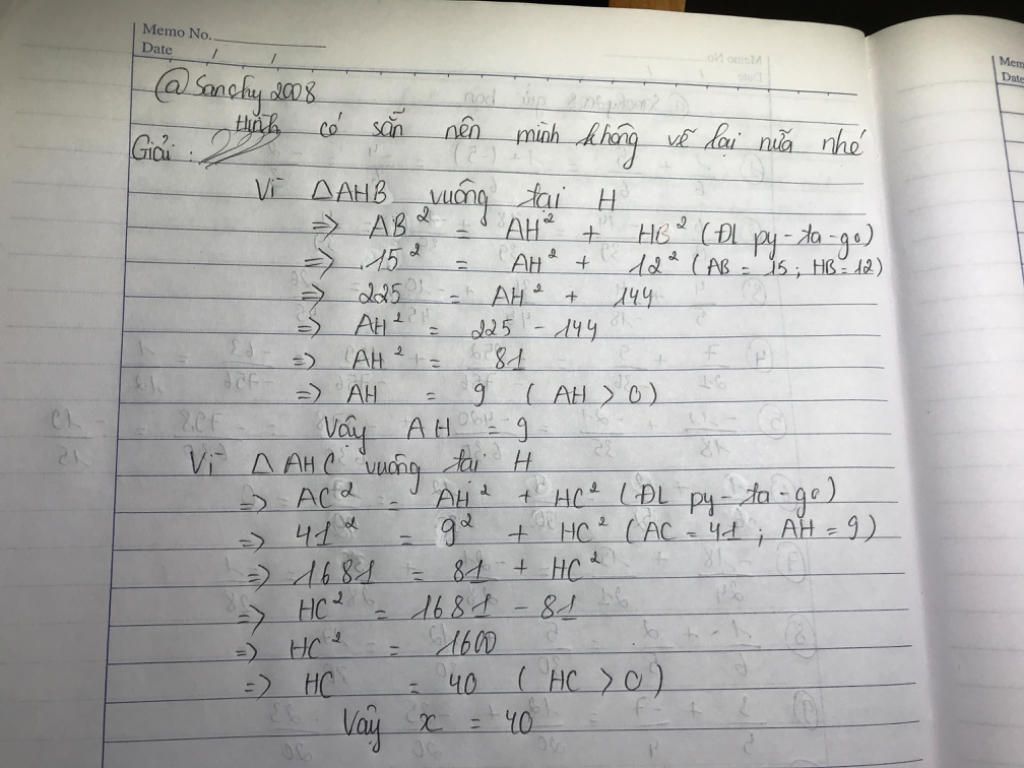 Memo No.
Date / /
@Sanchy2008
Hình có sẵn nên mình không vẽ lại nữa nhé
Giải :
Vì △AHB vuông tại H
=> AB² = AH² + HB² (ĐL py-ta-go)
=> 15² = AH² + 12² (AB = 15 ; HB = 12)
=> 225 = AH² + 144
=> AH² = 225 - 144
=> AH² = 81
=> AH = 9 (AH > 0)
Vậy AH = 9
Vì △AHC vuông tại H
=> AC² = AH² + HC² (ĐL py-ta-go)
=> 41² = 9² + HC² (AC = 41 ; AH = 9)
=> 1681 = 81 + HC²
=> HC² = 1681 - 81
=> HC² = 1600
=> HC = 40 (HC > 0)
Vậy x = 40